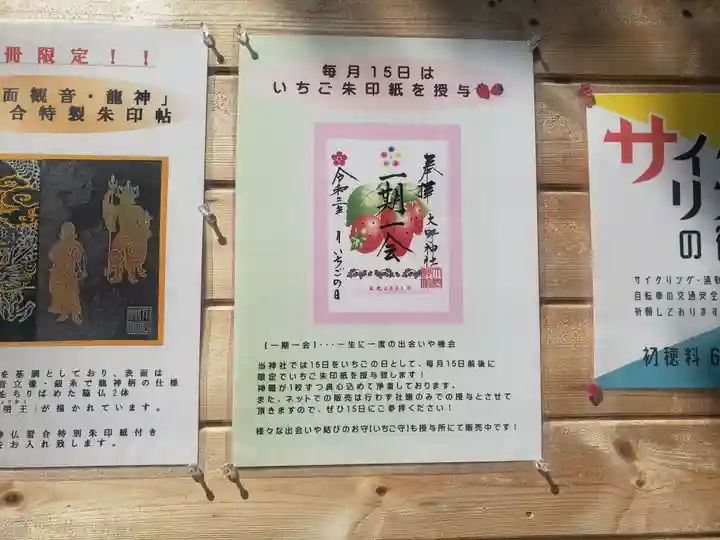 冊限定!!
面観音・龍神」
合特製朱印帖
を基調としており、表面は
音立像・銀糸で龍神柄の仕様
をちりばめた脇仏2体
明王】が描かれています。
神仏習合特別朱印紙付き
をお入れ致します。
毎月15日は
いちご朱印紙を授与
奉拝
大野神社
一期一会
令和三年
月いちごの日
【一期一会】・・・一生に一度の出会いや機会
当神社では15日をいちごの日として、毎月15日前後に
限定でいちご朱印紙を授与致します!
神職が1枚ずつ真心込めて浄書しております。
また、ネットでの販売は行わず社頭のみでの授与とさせて
頂きますので、ぜひ15日にご参拝ください!
様々な出会いや結びのお守【いちご守】も授与所にて販売中です!
サイク
リン
の
サイクリング・通勤
自転車の交通安全
祈願しております
初穂料 6